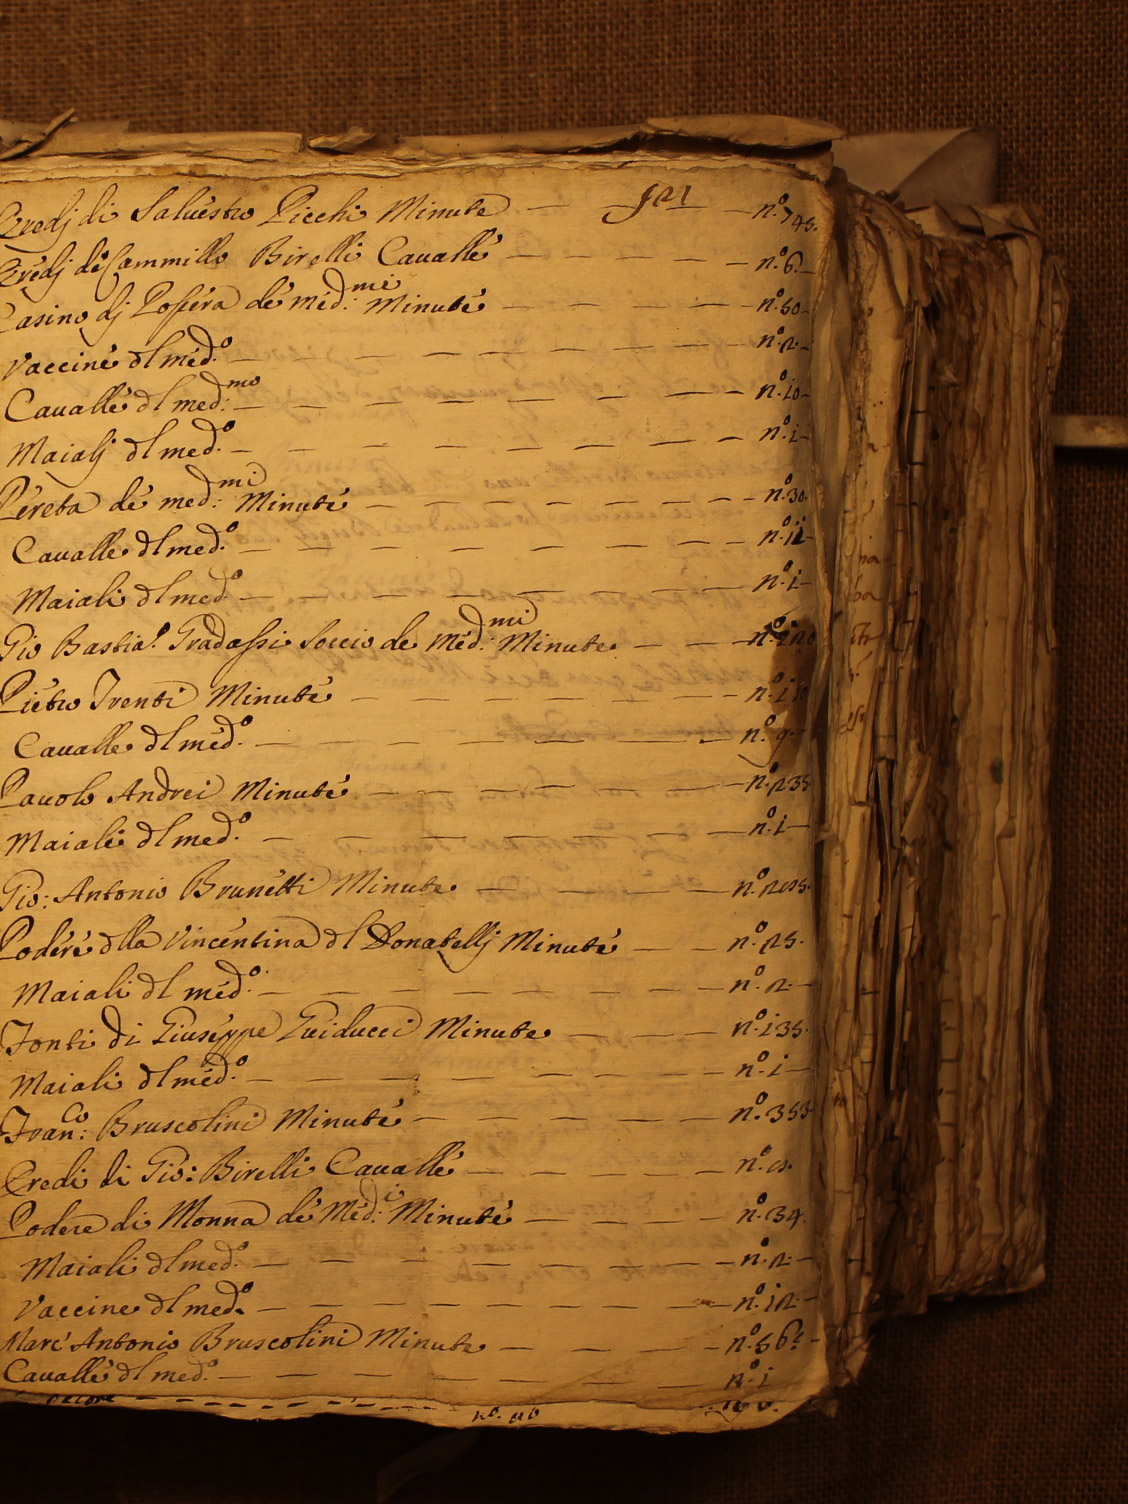 Eredj di Saluestro Picchi Minute — — n.º 745.
Eredj de Cammillo Birelli Cauallé — — — — — n.º 6.
Casino dj de med.mi Minuté — — — — — n.º 50
Vaccine dl med.º — — — — — — — n.º 2.
Cauallé dl med.mo — — — — — — — n.º 10
Maialj dl med.º — — — — — — — n.º 1
Péreta dé med.mi Minuté — — — — — n.º 30.
Caualle dl med.º — — — — — — — n.º
Maiali dl med.º — — — — — — — n.º 1
Gio Bastia.º Gradassi soccio de Med.mi Minute — — n.º
Piétro Trenti Minuté — — — — — n.º
Caualle dl méd.º — — — — — — — n.º 9
Pauolo Andrei Minuté — — — — — n.º 235
Maiali dl med.º — — — — — — — n.º 1
Gio: Antonio Brunétti Minute — — — — n.º
Podéré dlla Vincéntina dl Donatellj Minuté — — n.º 25.
Maiali dl méd.º — — — — — — — n.º 2
Fonti di Giuséppe Guiducci Minute — — — n.º 135.
Maiali dl méd.º — — — — — — — n.º 1
Fran.co: Bruscolini Minuté — — — — — n.º 353
Eredi di Gio: Birelli Cauallé — — — — — n.º
Podere di Monna dé Méd.i Minuté — — — n.º 34.
Maiali dl med.º — — — — — — — n.º 2
Vaccine dl med.º — — — — — — — n.º 12
Marc Antonio Bruscolini Minute — — — — n.º 56
Cauallé dl med.º — — — — — — — n.º 1